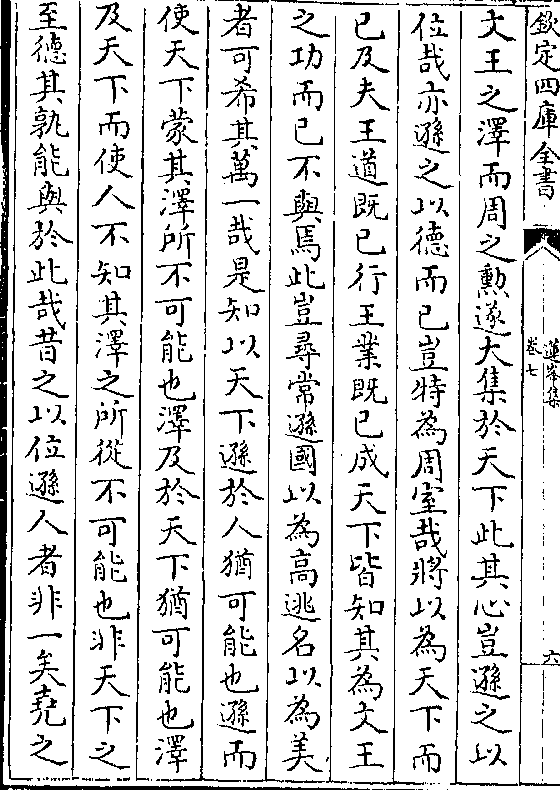 欽定四庫全書
蓮峯集
卷七
六
文王之澤而周之勲遂大集於天下此其心豈遜之以
位哉亦遜之以德而已豈特為周室哉將以為天下而
已及夫王道既已行王業既已成天下皆知其為文王
之功而已不與焉此豈尋常遜國以為高逃名以為美
者可希其萬一哉是知以天下遜於人猶可能也遜而
使天下蒙其澤所不可能也澤及於天下猶可能也澤
及天下而使人不知其澤之所從不可能也非天下之
至德其孰能與於此哉昔之以位遜人者非一矣堯之